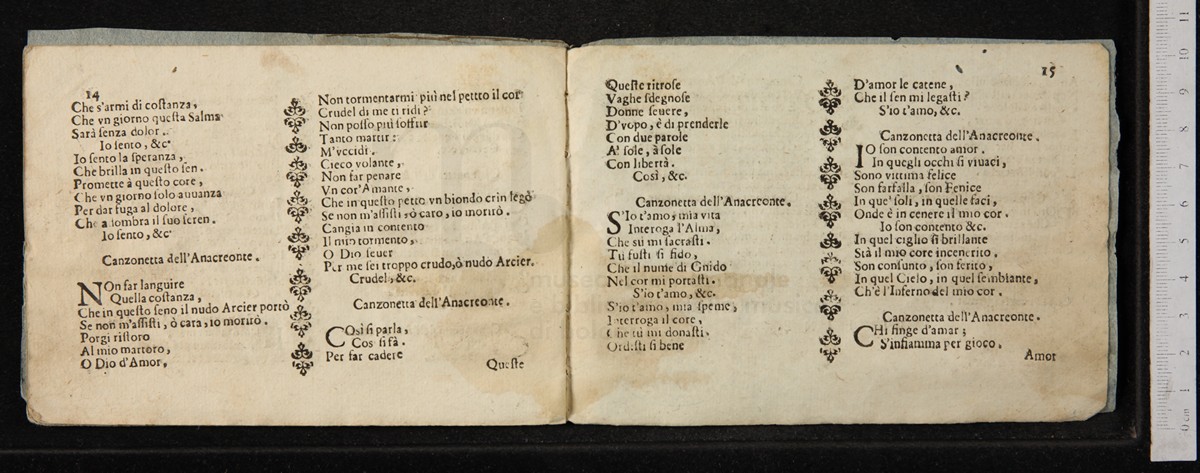 14
Che s'armi di costanza,
Che vn giorno questa Salma
Sarà senza dolor.
Io sento, &c.
Io sento la speranza,
Che brilla in questo sen.
Promette à questo core,
Che vn giorno solo auuanza
Per dar fuga al dolore,
Che a lombra il suo seren.
Io sento, &c.
Canzonetta dell'Anacreonte.
NOn far languire
Quella costanza,
Che in questo seno il nudo Arcier portò
Se non m'assisti, ò cara, io morirò.
Porgi ristoro
Al mio martoro,
O Dio d'Amor,
Non tormentarmi più nel pettto il cor
Crudel di me ti ridi?
Non posso più soffrir
Tanto martir:
M'vccidi.
Cieco volante,
Non far penare
Vn cor'Amante,
Che in questo petto vn biondo crin legò
Se non m'assisti, ò caro, io morirò.
Cangia in contento
Il mio tormento,
O Dio seuer
Per me sei troppo crudo, ò nudo Arcier.
Crudel, &c.
Canzonetta dell'Anacreonte.
COsì si parla,
Cos si fà.
Per far cadere
Queste
15
Queste ritrose
Vaghe sdegnose
Donne seuere,
D'vopo, è di prenderle
Con due parole
A' sole, à sole
Con libertà.
Così, &c.
Canzonetta dell'Anacreonte.
S'Io t'amo, mia vita
Interoga l'Alma,
Che sù mi sacrasti.
Tu fusti si fido,
Che il nume di Gnido
Nel cor mi portasti.
S'io t'amo, &c.
S'io t'amo, mia speme,
Interroga il core,
Che tù mi donasti.
Ordisti si bene
D'amor le catene,
Che il sen mi legasti?
S'io t'amo, &c.
Canzonetta dell'Anacreonte.
IO son contento amor.
In quegli occhi si viuaci,
Sono vittima felice
Son farfalla, son Fenice
In que' soli, in quelle faci,
Onde è in cenere il mio cor.
Io son contento &c.
In quel ciglio si brillante
Stà il mio core incenerito.
Son consunto, son ferito,
In quel Cielo, in quel sembiante,
Ch'è l'Inferno del mio cor.
Canzonetta dell'Anacreonte.
CHi finge d'amar;
S'infiamma per gioco.
Amor